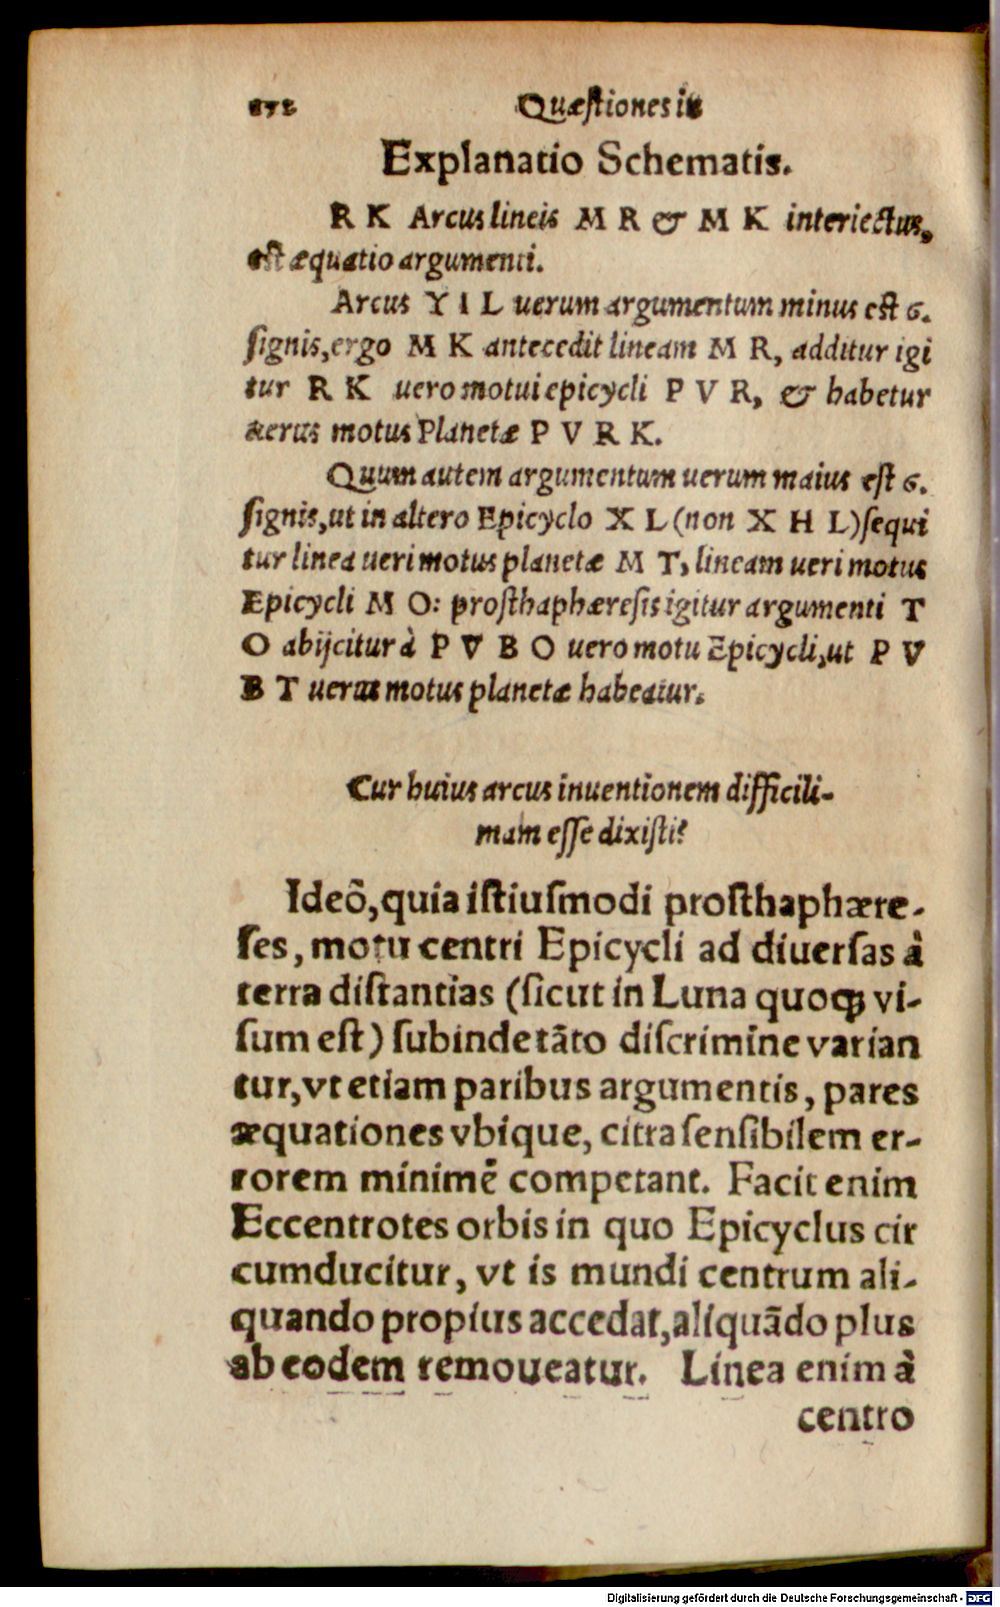 Quæstiones in
Explanatio Schematis.
R K Arcus lineis M R & M K interiectus,
est æquatio argumenti.
Arcus Y I L uerum argumentum minus est 6.
signis, ergo M K antecedit lineam M R, additur igi
tur R K uero motui epicycli P V R, & habetur
uerus motus Planetæ P V R K.
Quum autem argumentum uerum maius est 6.
signis, ut in altero Epicyclo X L (non X H L) sequi
tur linea ueri motus planetæ M T, lineam ueri motus
Epicycli M O: prosthaphæresis igitur argumenti T
O abijcitur à P V B O uero motu Epicycli, ut P V
B T uerus motus planetæ habeatur.
Cur huius arcus inuentionem difficili-
mam esse dixisti?
Ideõ, quia istiusmodi prosthaphære-
ses, motu centri Epicycli ad diuersas à
terra distantias (sicut in Luna quoqꝫ vi-
sum est) subinde tãto discrimine varian
tur, vt etiam paribus argumentis, pares
æquationes vbique, citra sensibilem er-
rorem minimẽ competant. Facit enim
Eccentrotes orbis in quo Epicyclus cir
cumducitur, vt is mundi centrum ali-
quando propius accedat, aliquãdo plus
ab eodem remoueatur. Linea enim à
centro
Digitalisierung gefördert durch die Deutsche Forschungsgemeinschaft - DFG